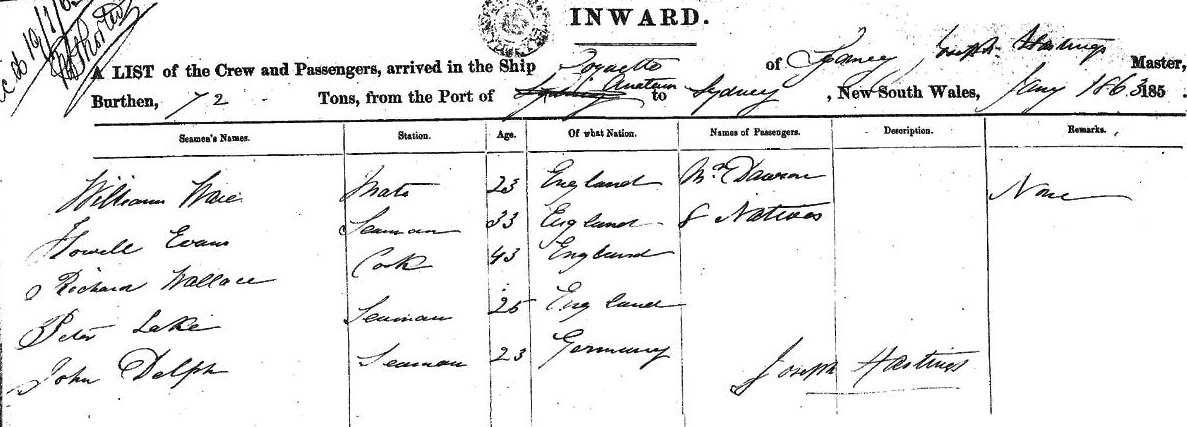 INWARD.
A LIST of the Crew and Passengers, arrived in the Ship of Joseph Hastings Master,
Burthen, 72 Tons, from the Port of to Sydney, New South Wales, Jany 1863 185 .
Seamen's Names. Station. Age. Of what Nation. Names of Passengers. Description. Remarks.
William Ware Mate 23 England Mr Dawson None
Howell Evans Seaman 33 England 8 Natives
Richard Wallace Cook 43 England
Peter Lake Seaman 25 England
John Delph Seaman 23 Germany
Joseph Hastings